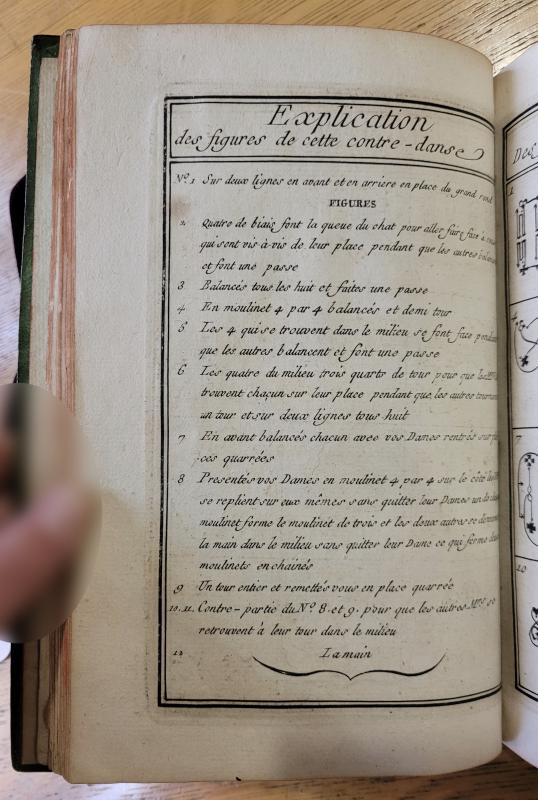 Explication
des figures de cette contre-danse
Nº. 1 Sur deux lignes en avant et en arriere en place du grand rond
FIGURES
2. Quatre de biais font la queue du chat pour aller faire face à
qui sont vis-à-vis de leur place pendant que les autres
et font une passe
3 Balancés tous les huit et faites une passe
4. En moulinet 4 par 4 balancés et demi tour
5 Les 4 qui se trouvent dans le milieu se font face
que les autres balancent et font une passe
6 Les quatre du milieu trois quarts de tour pour que les
trouvent chacun sur leur place pendant que les autres
un tour et sur deux lignes tous huit
7 En avant balancés chacun avec vos Dames rentrés sur
ces quarrées
8 Presentés vos Dames en moulinet 4 par 4 sur le côté
se replient sur eux mêmes sans quitter leur Dames un
moulinet forme le moulinet de trois et les deux autres se
la main dans le milieu sans quitter leur Dame ce qui forme
moulinets enchainés
9 Un tour entier et remettés vous en place quarrée
10. 11. Contre-partie du Nº. 8. et 9. pour que les autres Mrs. se
retrouvent à leur tour dans le milieu
12 La main
Des
1
4
7
10